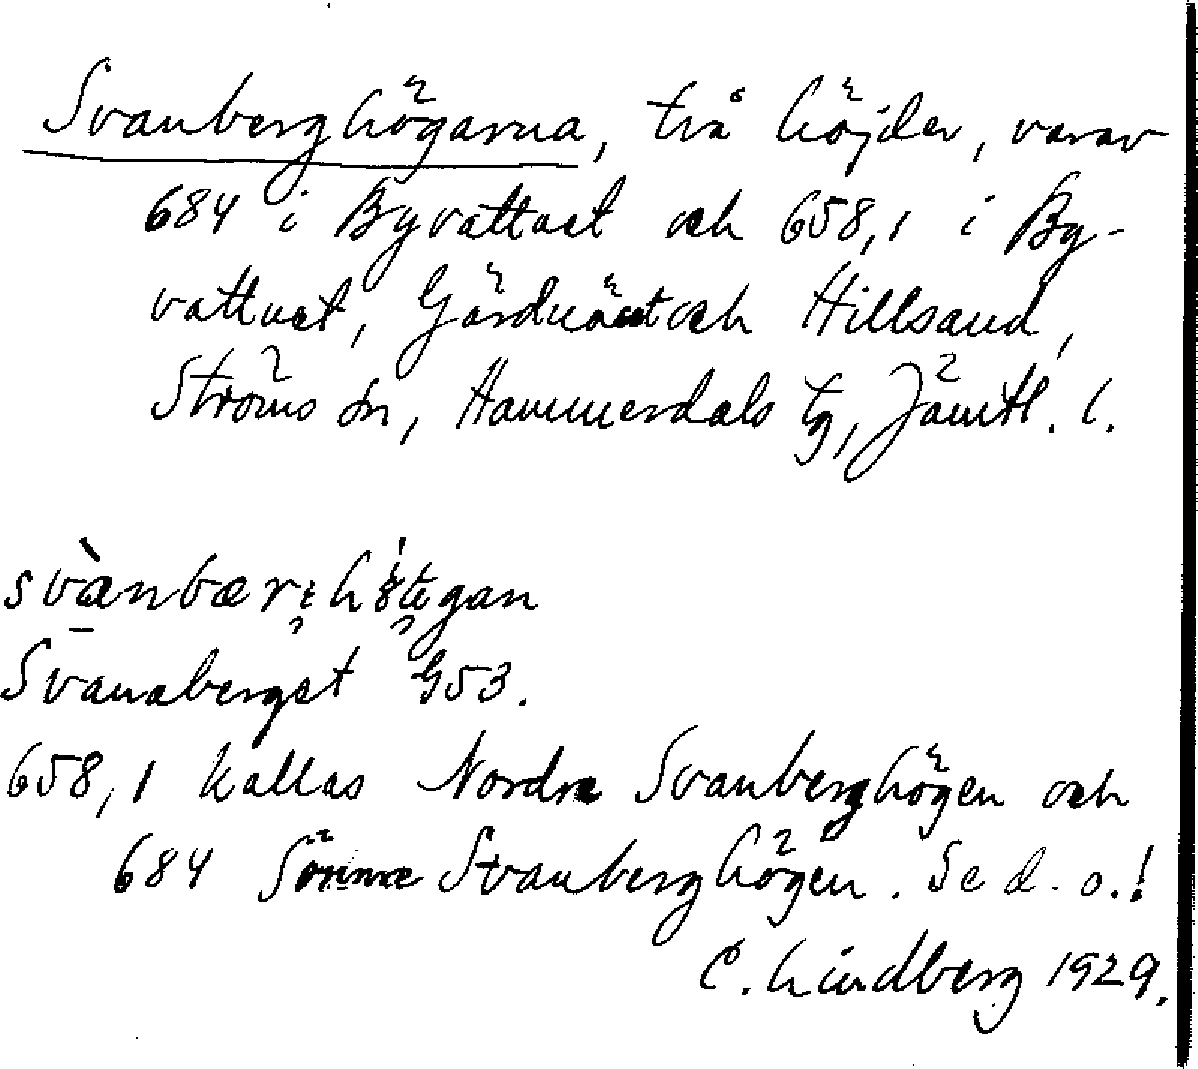 Svanberghögarna, två höjder, varav
684 i Byvattnet och 658,1 i By-
vattnet, Gärdnäset och Hillsand,
Ströms sn, Hammerdals tg, Jämtl. l.
Svanaberget G53.
658,1 kallas Nordre Svanberghögen och
684 Svanberghögen. Se d. o.!
C. Lindberg 1929.